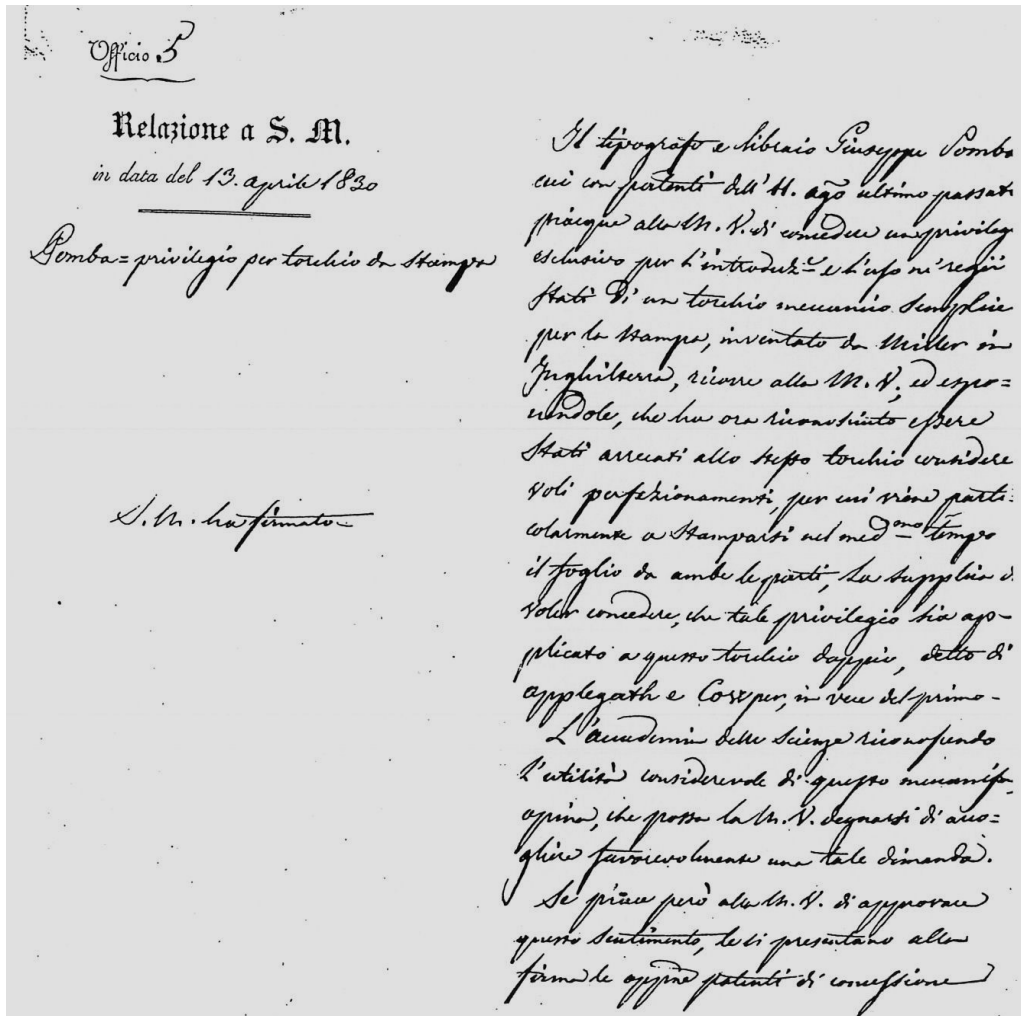 Officio 5
Relazione a S. M.
in data del 13. aprile 1830
Pomba = privilegio per torchio da stampa
S. M. ha firmato
Il tipografo e libraio Giuseppe Pomba
cui con patenti dell' 11. agõ ultimo passato
piacque alla M. V. di concedere un privileg
esclusivo per l'introduz.e e l'uso ne' regii
Stati di un torchio meccanico semplice
per la stampa, inventato da Miller in
Inghilterra, ricorre alla M. V., ed espo=
nendole, che ha ora riconosciuto essere
stati arrecati allo stesso torchio considere
voli perfezionamenti, per cui viene parti=
colarmente a stamparsi nel med.mo tempo
il foglio da ambe le parti, La supplica d.
voler concedere, che tale privilegio sia ap-
plicato a questo torchio doppio, detto di
applegath e Cowper, in vece del primo-
L'accademia delle Scienze riconoscendo
l'utilità considerevole di questo meccanism
opina, che possa la M. V. degnarsi di acco=
gliere favorevolmente una tale dimanda.
Se piace però alla M. V. di approvare
questo sentimento, le si presentano alla
firma le oppne patenti di concessione